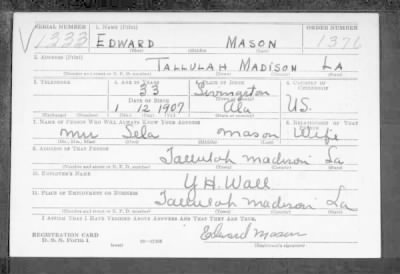 SERIAL NUMBER 1. NAME (Print) ORDER NUMBER
V 1333 EDWARD MASON 1376
(First) (Middle) (Last)
2. ADDRESS (Print)
TALLULAH MADISON LA
(Number and street or R. F. D. number) (Town) (County) (State)
3. TELEPHONE 4. AGE IN YEARS 5. PLACE OF BIRTH 6. COUNTRY OF CITIZENSHIP
33 Livingston
DATE OF BIRTH (Town or county)
1 12 1907 Ala U.S.
(Exchange) (Number) (Mo.) (Day) (Yr.) (State or country)
7. NAME OF PERSON WHO WILL ALWAYS KNOW YOUR ADDRESS 8. RELATIONSHIP OF THAT PERSON
Mrs Lela Mason Wife
(Mr., Mrs., Miss) (First) (Middle) (Last)
9. ADDRESS OF THAT PERSON
Tallulah Madison La
(Number and street or R. F. D. number) (Town) (County) (State)
10. EMPLOYER'S NAME
Y. H. Wall
11. PLACE OF EMPLOYMENT OR BUSINESS
Tallulah Madison La
(Number and street or R. F. D. number) (Town) (County) (State)
I AFFIRM THAT I HAVE VERIFIED ABOVE ANSWERS AND THAT THEY ARE TRUE.
REGISTRATION CARD Edward Mason
D. S. S. Form 1 (Registrant's signature)